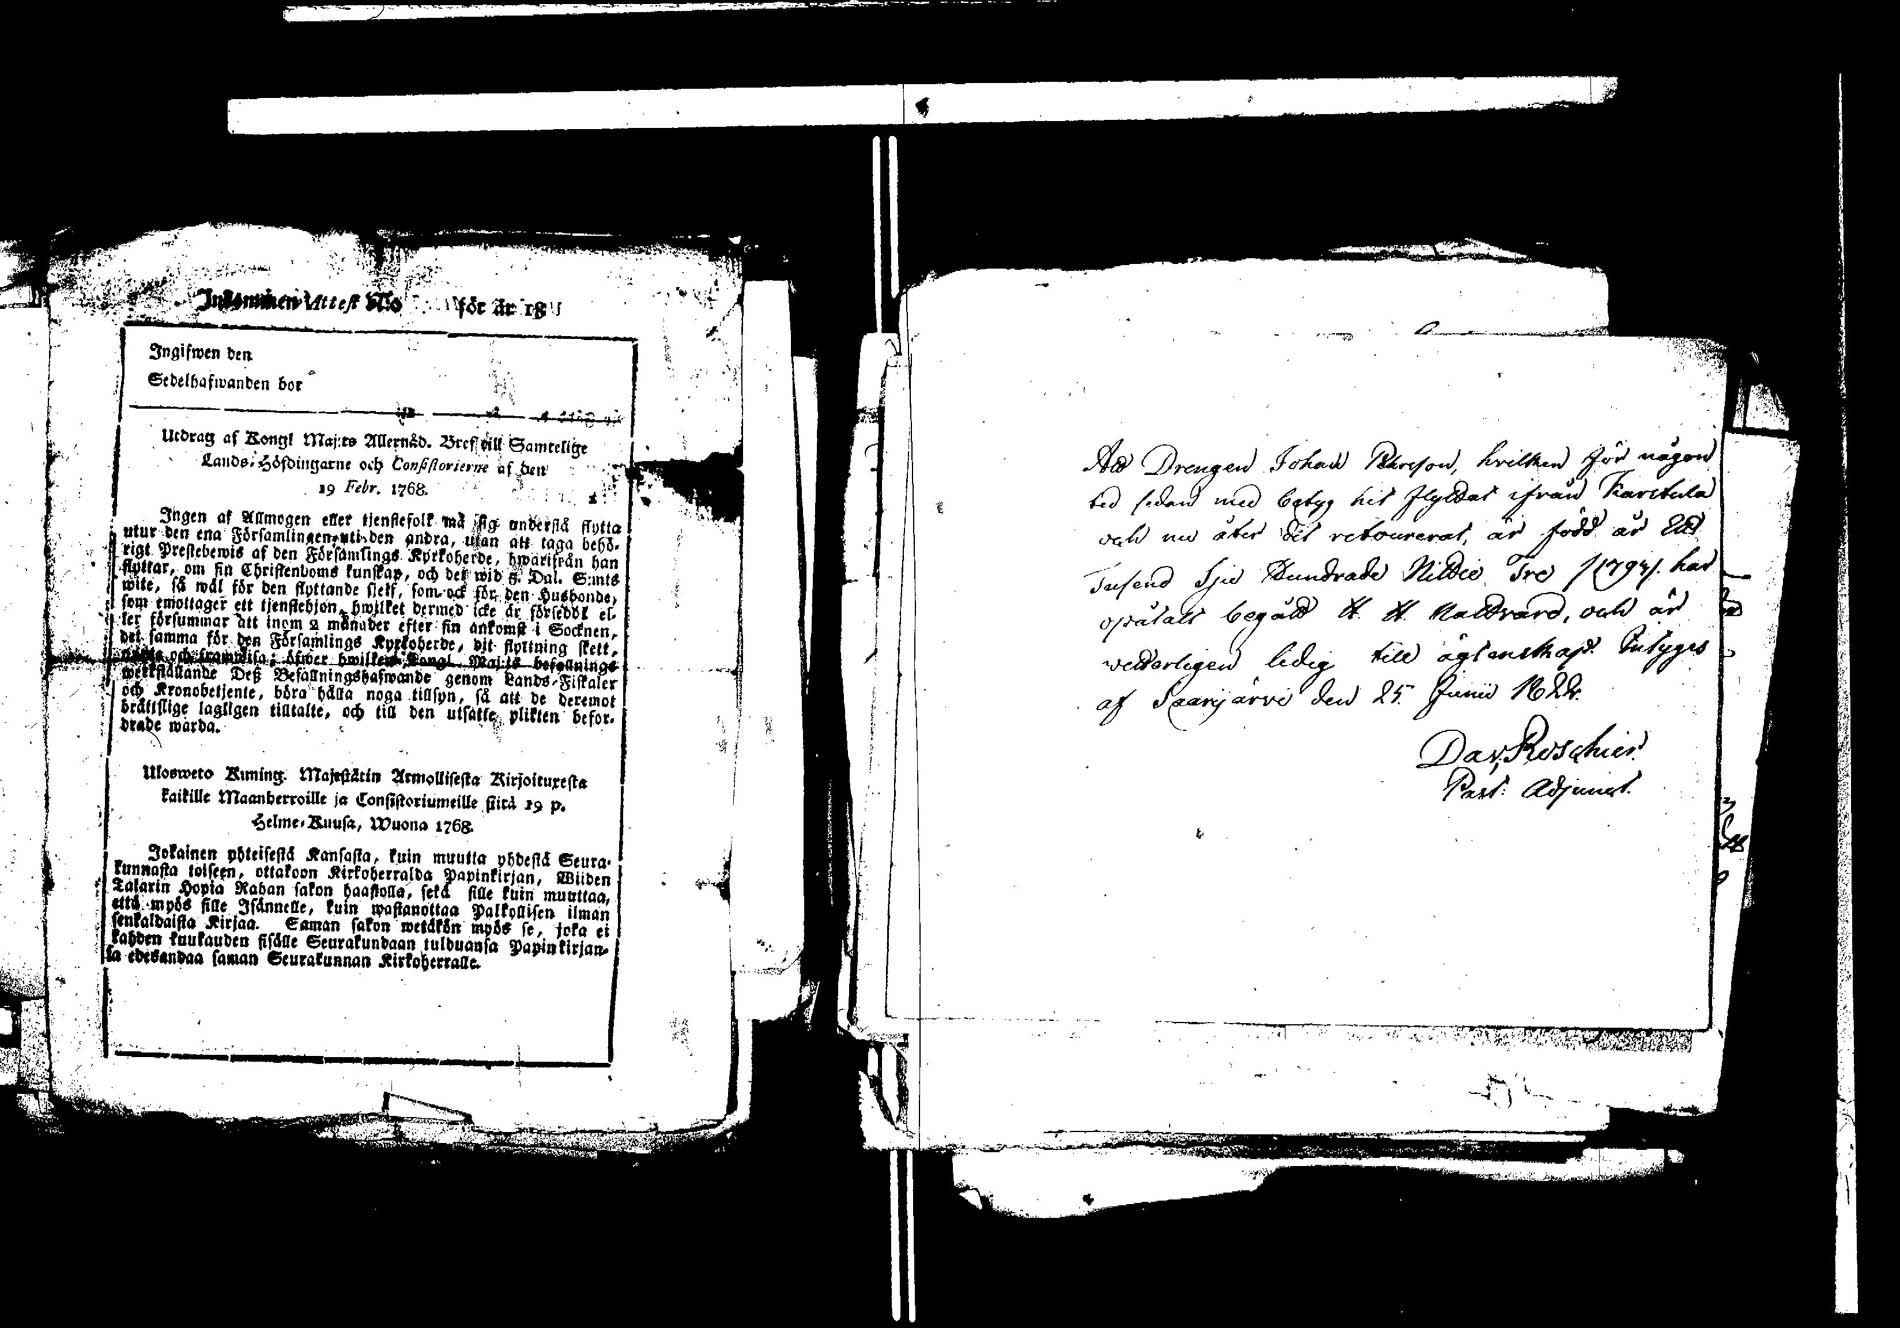 Inkommen Attest No för år 18
Ingifwen den
Sedelhafwanden bor
Utdrag af Kongl Maj:ts Allernåd. Bref till Samtelige
Lands-Höfdingarne och Consistorierne af den
19 Febr. 1768.
Ingen af Allmogen eller tjenstefolk må sig understå flytta
utur den ena Församlingen uti den andra, utan att taga behö-
rigt Prestebewis af den Församlings Kyrkoherde, hwarifrån han
flyttar, om sin Christendoms kunskap, och det wid 5. Dal. S:mts
wite, så wäl för den flyttande sielf, som ock för den Husbonde,
som emottager ett tjenstehjon, hwilket dermed icke är försedt el-
ler försummar att inom 2 månader efter sin ankomst i Socknen,
det samma för den Församlings Kyrkoherde, dit flyttning skett,
och framwisa; öfwer hwilken Kongl. Maj:ts befallnings
werkställande Deß Befallningshafwande genom Lands-Fiskaler
och Kronobetjente, böra hålla noga tillsyn, så att de deremot
bråttslige lagligen tilltalte, och till den utsatte plikten befor-
drade warda.
Uloswето Kuning. Majestätin Armollisesta Kirjoituxesta
kaikille Maanherroille ja Consistoriumeille siitä 19 p.
Helme-Kuusa, Wuona 1768.
Jokainen yhteisestä Kansasta, kuin muutta yhdestä Seura-
kunnasta toiseen, ottakoon Kirkoherralda Papinkirjan, Wiiden
Talarin Hopia Rahan sakon haastolla, sekä sille kuin muuttaa,
että myös sille Isännelle, kuin wastanottaa Palkollisen ilman
senkaldaista Kirjaa. Saman sakon wetäkön myös se, joka ei
kahden kuukauden sisälle Seurakundaan tulduansa Papinkirjan-
sa edesandaa saman Seurakunnan Kirkoherralle.
Att Drengen Johan Pehrsson, hvilken för någon
tid sedan med betyg hit flyttat ifrån Karstula
och nu åter dit retournerat, är född år Ett
Tusend Sju Hundrade Nittio Tre /1793/. har
otaladt begått H. H. Nattvard, och är
vetterligen ledig till ägtenskap. Intygas
af Saarijärvi den 25 Junii 1822.
Dav. Roschier.
Past: Adjunct.